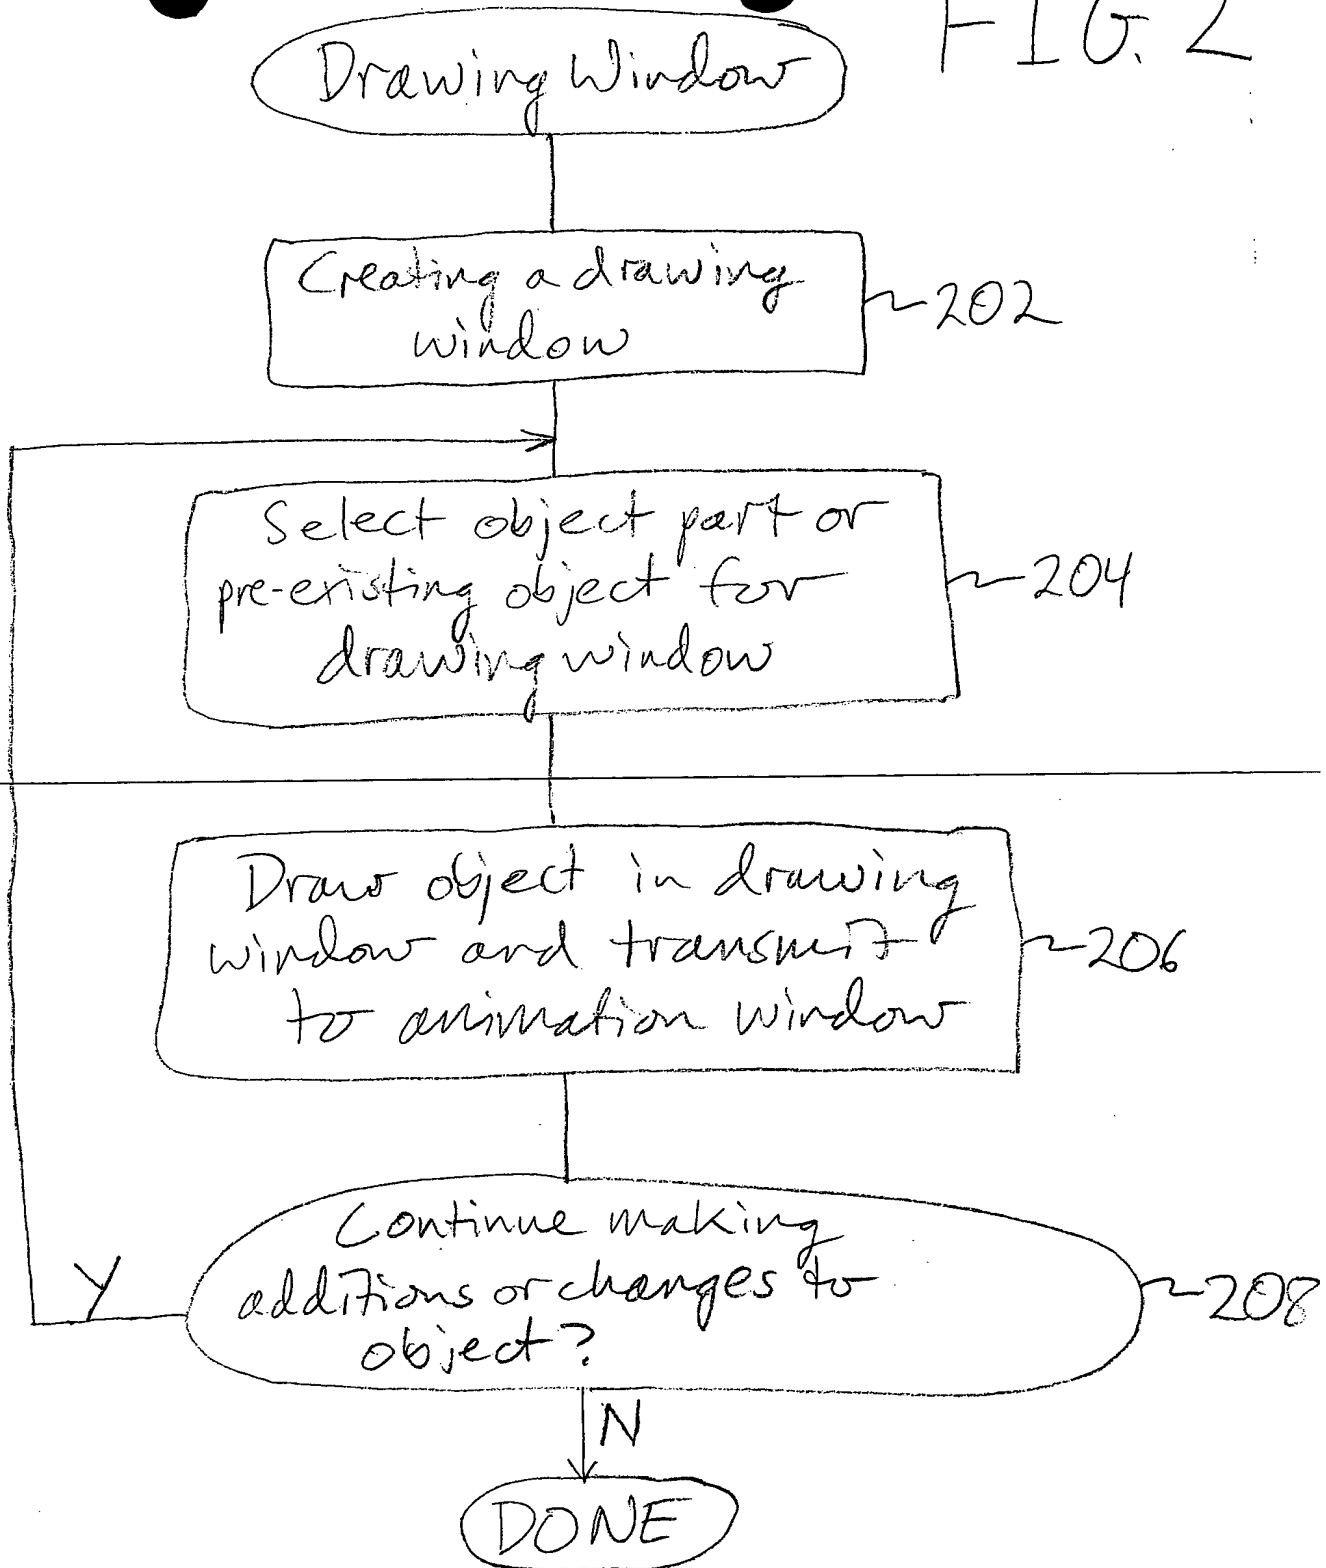 FIG. 2
Drawing Window
Creating a drawing
window
202
Select object part or
pre-existing object for
drawing window
204
Draw object in drawing
window and transmit
to animation window
206
Continue making
additions or changes to
object?
208
Y
N
DONE